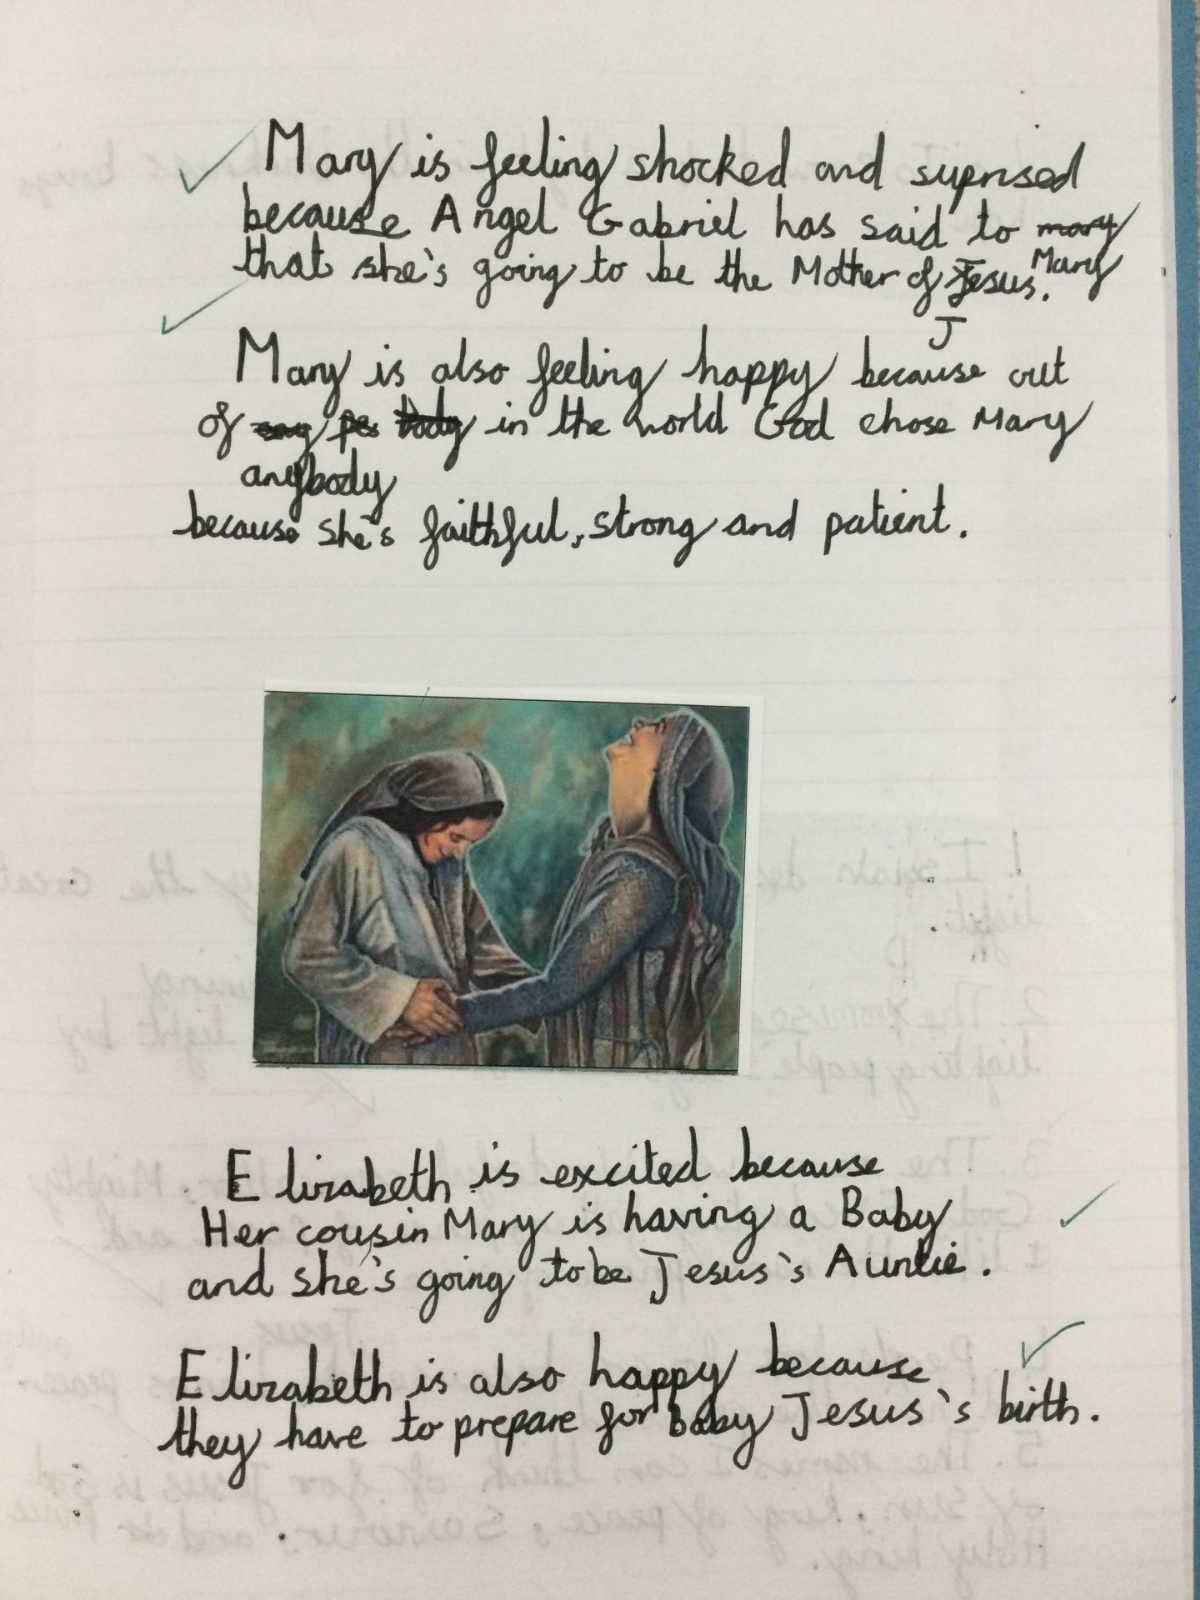 Mary is feeling shocked and suprised
because Angel Gabriel has said to mary
that she's going to be the Mother of Jesus. Mary
J
Mary is also feeling happy because out
of body in the world God chose Mary
anybody
because she's faithful, strong and patient.
Elizabeth is excited because
Her cousin Mary is having a Baby
and she's going to be Jesus's Auntie.
Elizabeth is also happy because
they have to prepare for baby Jesus's birth.